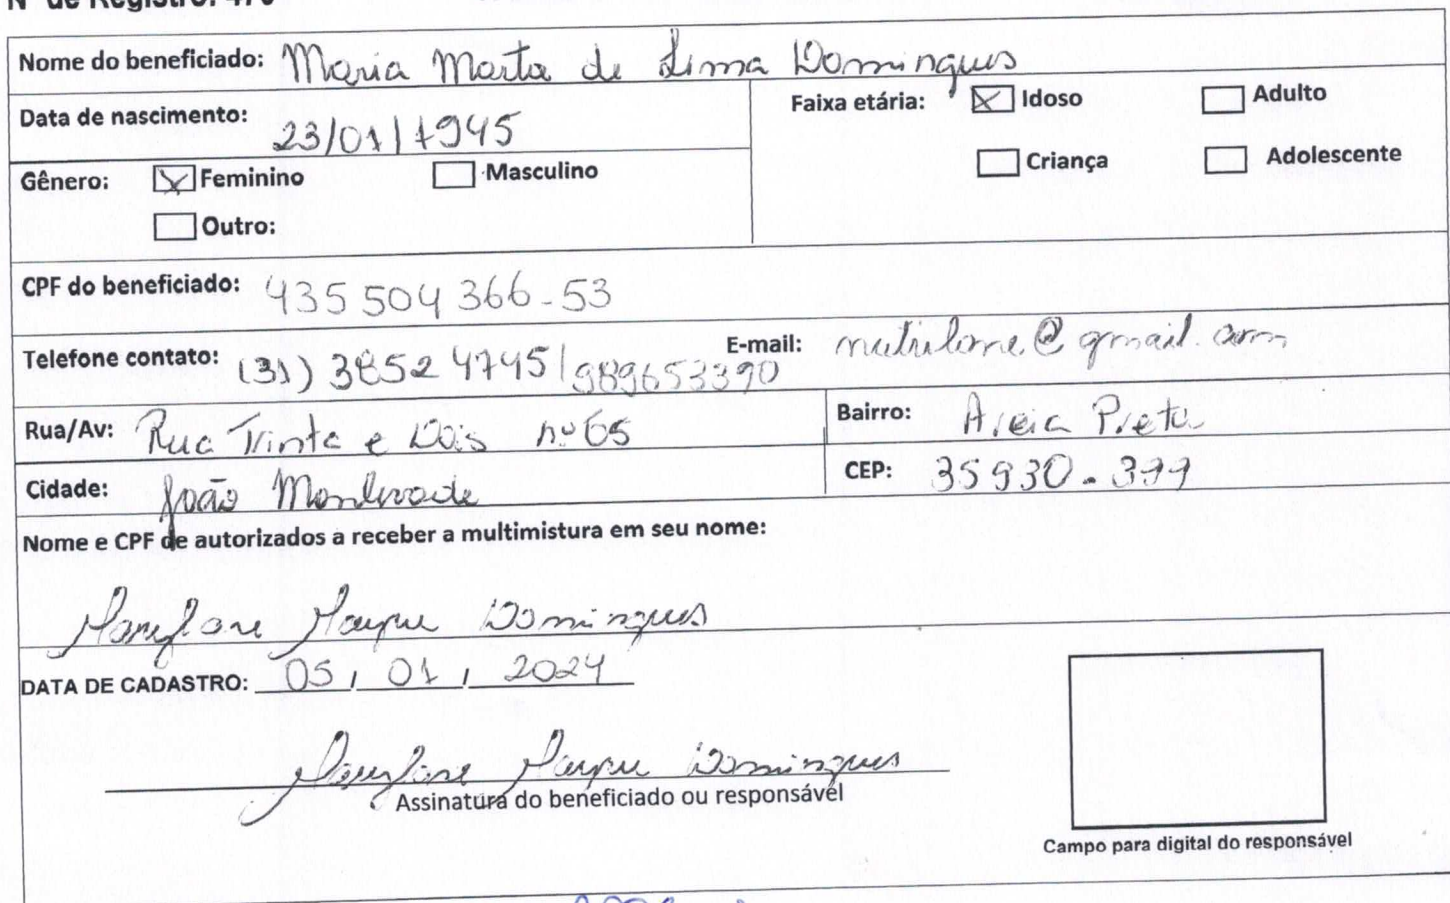 Nº de Registro: 476
Nome do beneficiado: Maria Marta de Lima Domingues
Data de nascimento: 23/01/1945
Faixa etária: Idoso Adulto
Criança Adolescente
Gênero: Feminino Masculino
Outro:
CPF do beneficiado: 435 504 366-53
Telefone contato: (31) 3852 4745 / 989653390 E-mail: @gmail.com
Rua/Av: Rua Trinta e Dois nº 65 Bairro: Areia Preta
Cidade: João Monlevade CEP: 35930-399
Nome e CPF de autorizados a receber a multimistura em seu nome:
Domingues
DATA DE CADASTRO: 05, 01, 2024
Domingues
Assinatura do beneficiado ou responsável
Campo para digital do responsável